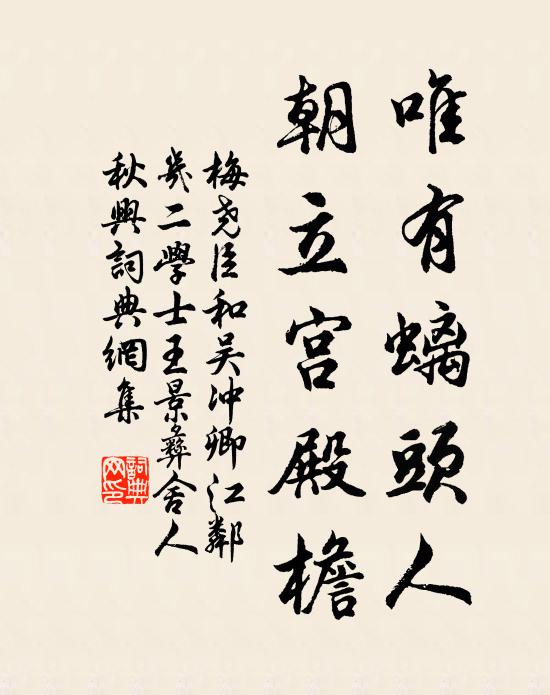 唯有螭頭人
朝立宫殿檐
梅堯臣和吴冲卿江鄰
幾二學士王景彝舍人
秋興詞典網集
詞典网印